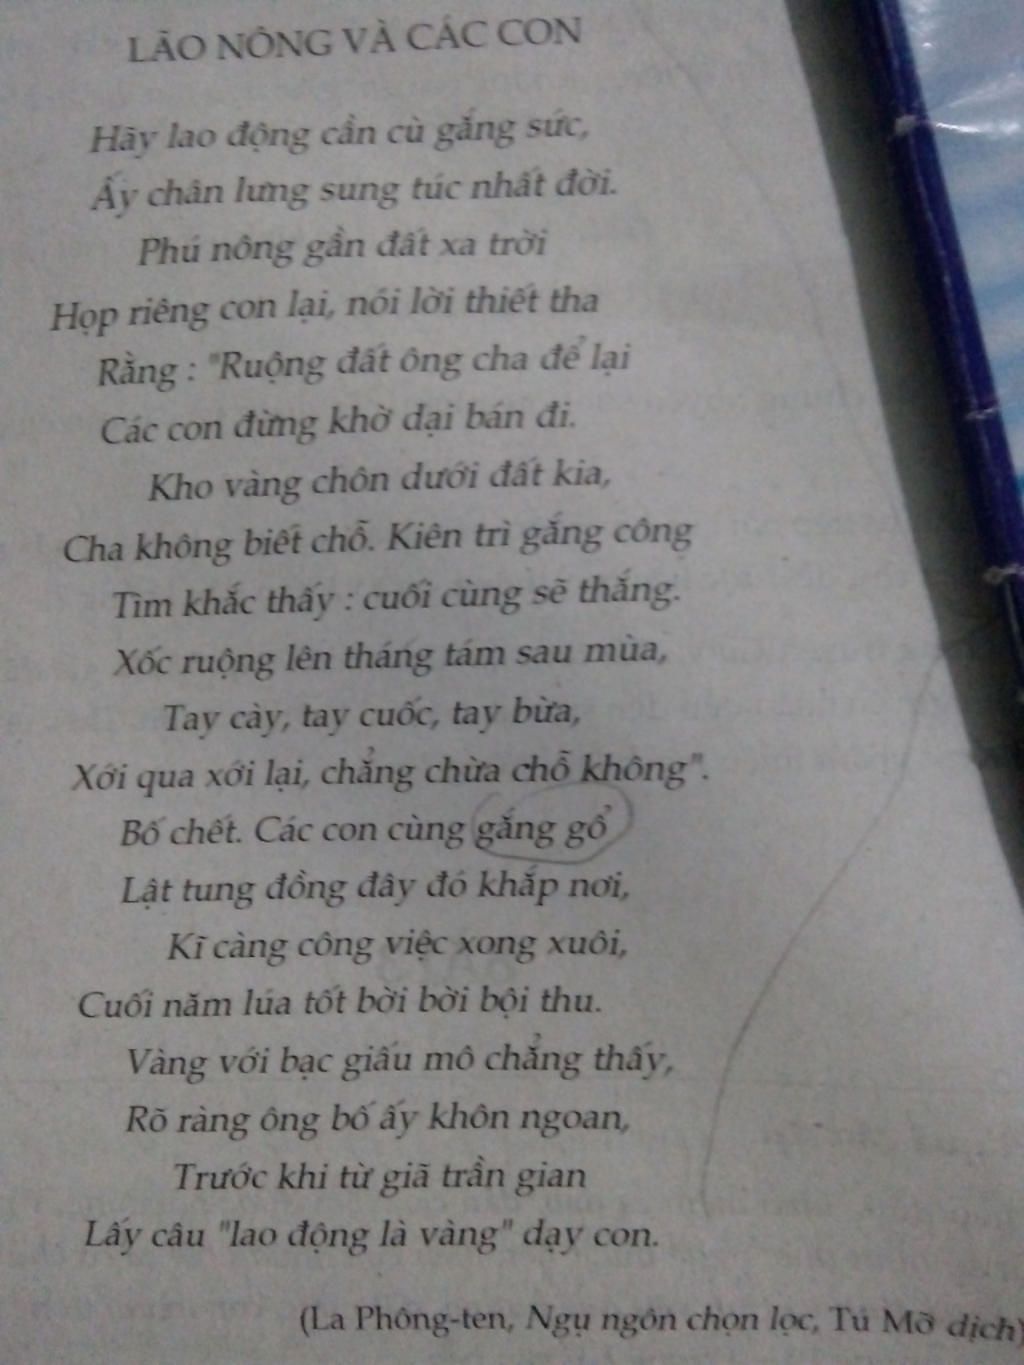 LÃO NÔNG VÀ CÁC CON
Hãy lao động cần cù gắng sức,
Ấy chân lưng sung túc nhất đời.
Phú nông gần đất xa trời
Họp riêng con lại, nói lời thiết tha
Rằng : "Ruộng đất ông cha để lại
Các con đừng khờ dại bán đi.
Kho vàng chôn dưới đất kia,
Cha không biết chỗ. Kiên trì gắng công
Tìm khắc thấy : cuối cùng sẽ thắng.
Xốc ruộng lên tháng tám sau mùa,
Tay cày, tay cuốc, tay bừa,
Xới qua xới lại, chẳng chừa chỗ không".
Bố chết. Các con cùng gắng gổ
Lật tung đồng đây đó khắp nơi,
Kĩ càng công việc xong xuôi,
Cuối năm lúa tốt bời bời bội thu.
Vàng với bạc giấu mô chẳng thấy,
Rõ ràng ông bố ấy khôn ngoan,
Trước khi từ giã trần gian
Lấy câu "lao động là vàng" dạy con.
(La Phông-ten, Ngụ ngôn chọn lọc, Tú Mỡ dịch)